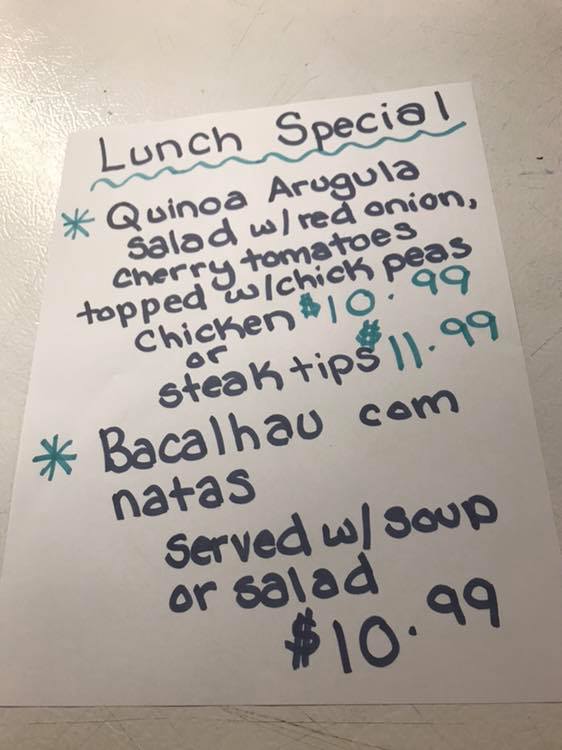 Lunch Special
* Quinoa Arugula
salad w/red onion,
cherry tomatoes
topped w/chick peas
chicken $10.99
or
steak tips $11.99
* Bacalhau com
natas
served w/ soup
or salad
$10.99